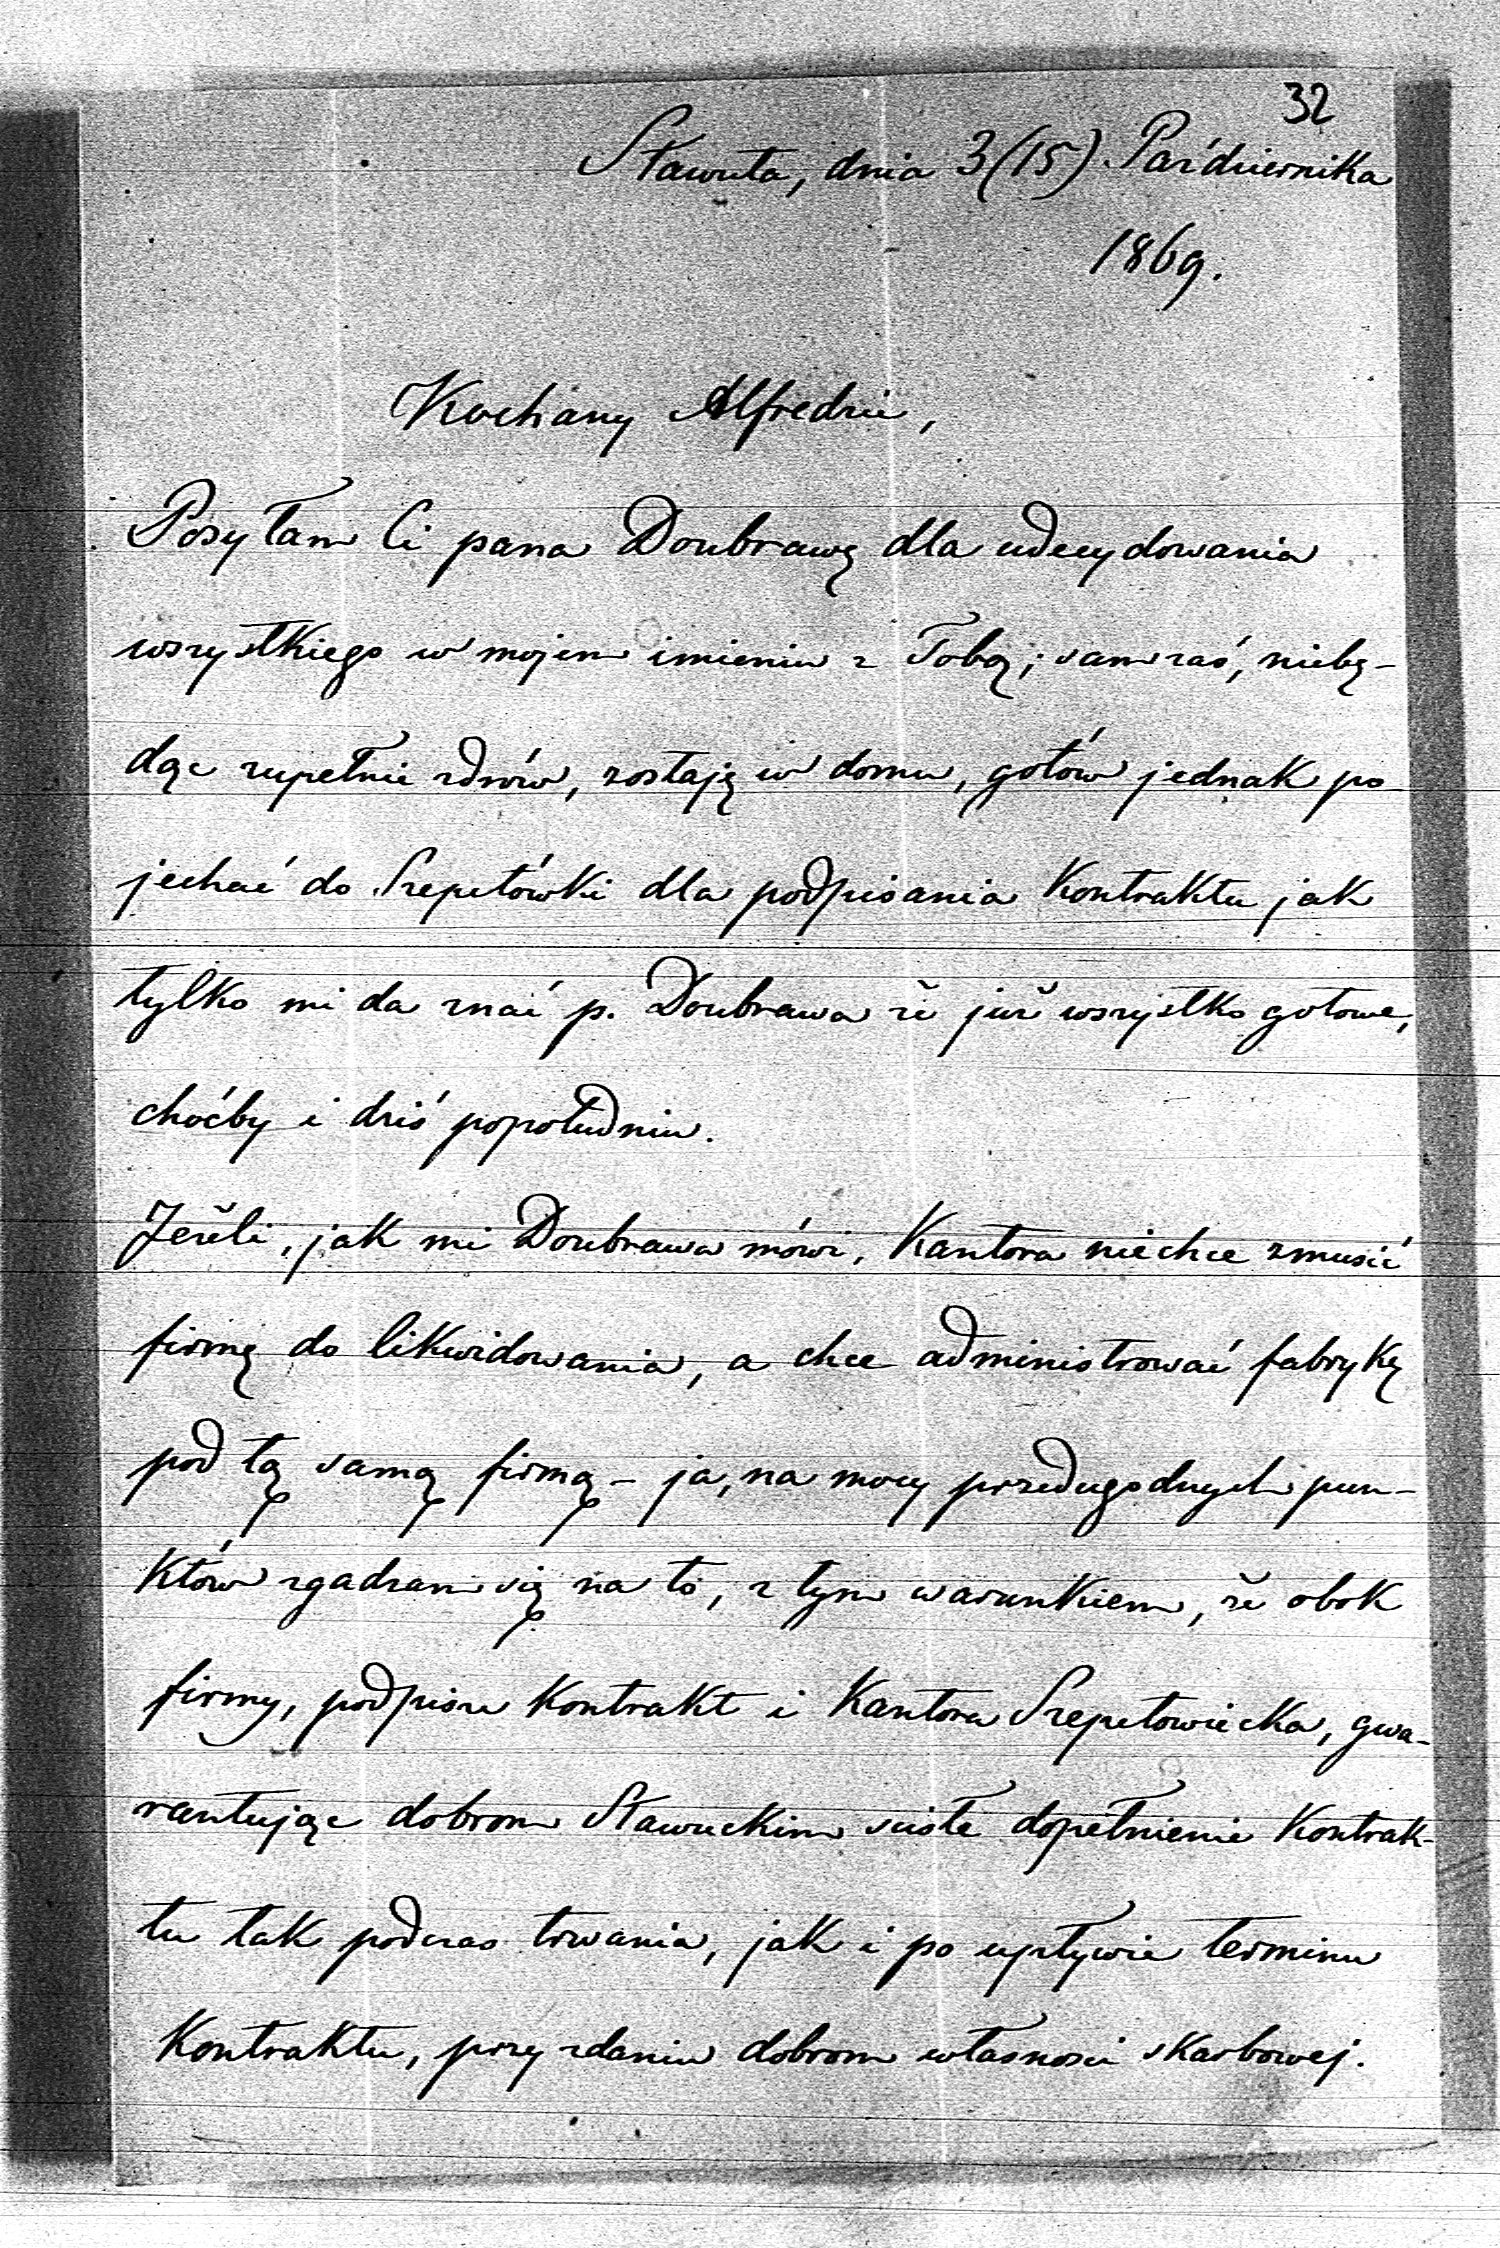 32
Sławuta, dnia 3 (15) Października
1869.
Kochany Alfredzie,
Posyłam Ci pana Doubrawę dla udecydowania
wszystkiego w mojem imieniu z Tobą; sam zaś, niebę-
dąc zupełnie zdrów, zostaję w domu, gotów jednak po
jechać do Szepetówki dla podpisania Kontraktu jak
tylko mi da znać p. Doubrawa że już wszystko gotowe,
choćby i dziś popołudniu.
Jeżeli, jak mi Doubrawa mówi, Kantora niechce zmusić
firmę do likwidowania, a chce administrować fabrykę
pod tą samą firmą – ja, na mocy przedugodnych pun-
któw zgadzam się na to, z tym warunkiem, że obok
firmy, podpisze Kontrakt i Kantora Szepetowiecka, gwa-
rantując dobrom Sławuckim ścisłe dopełnienie Kontrak-
tu tak podczas trwania, jak i po upływie terminu
Kontraktu, przy zdaniu dobrom własności skarbowej.